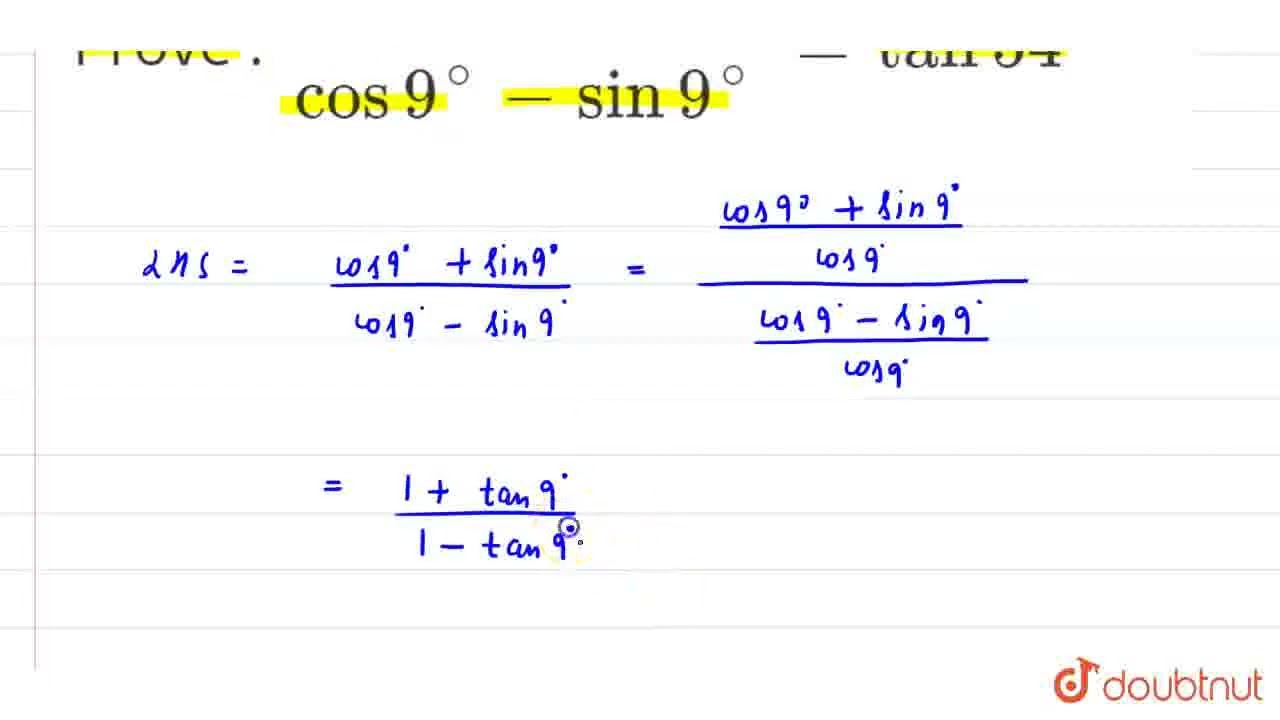 Prove : cos 9° − sin 9° = tan 54
LHS = cos 9° + sin 9° / cos 9° − sin 9° = cos 9° + sin 9° / cos 9° / cos 9° − sin 9° / cos 9°
= 1 + tan 9° / 1 − tan 9°
doubtnut